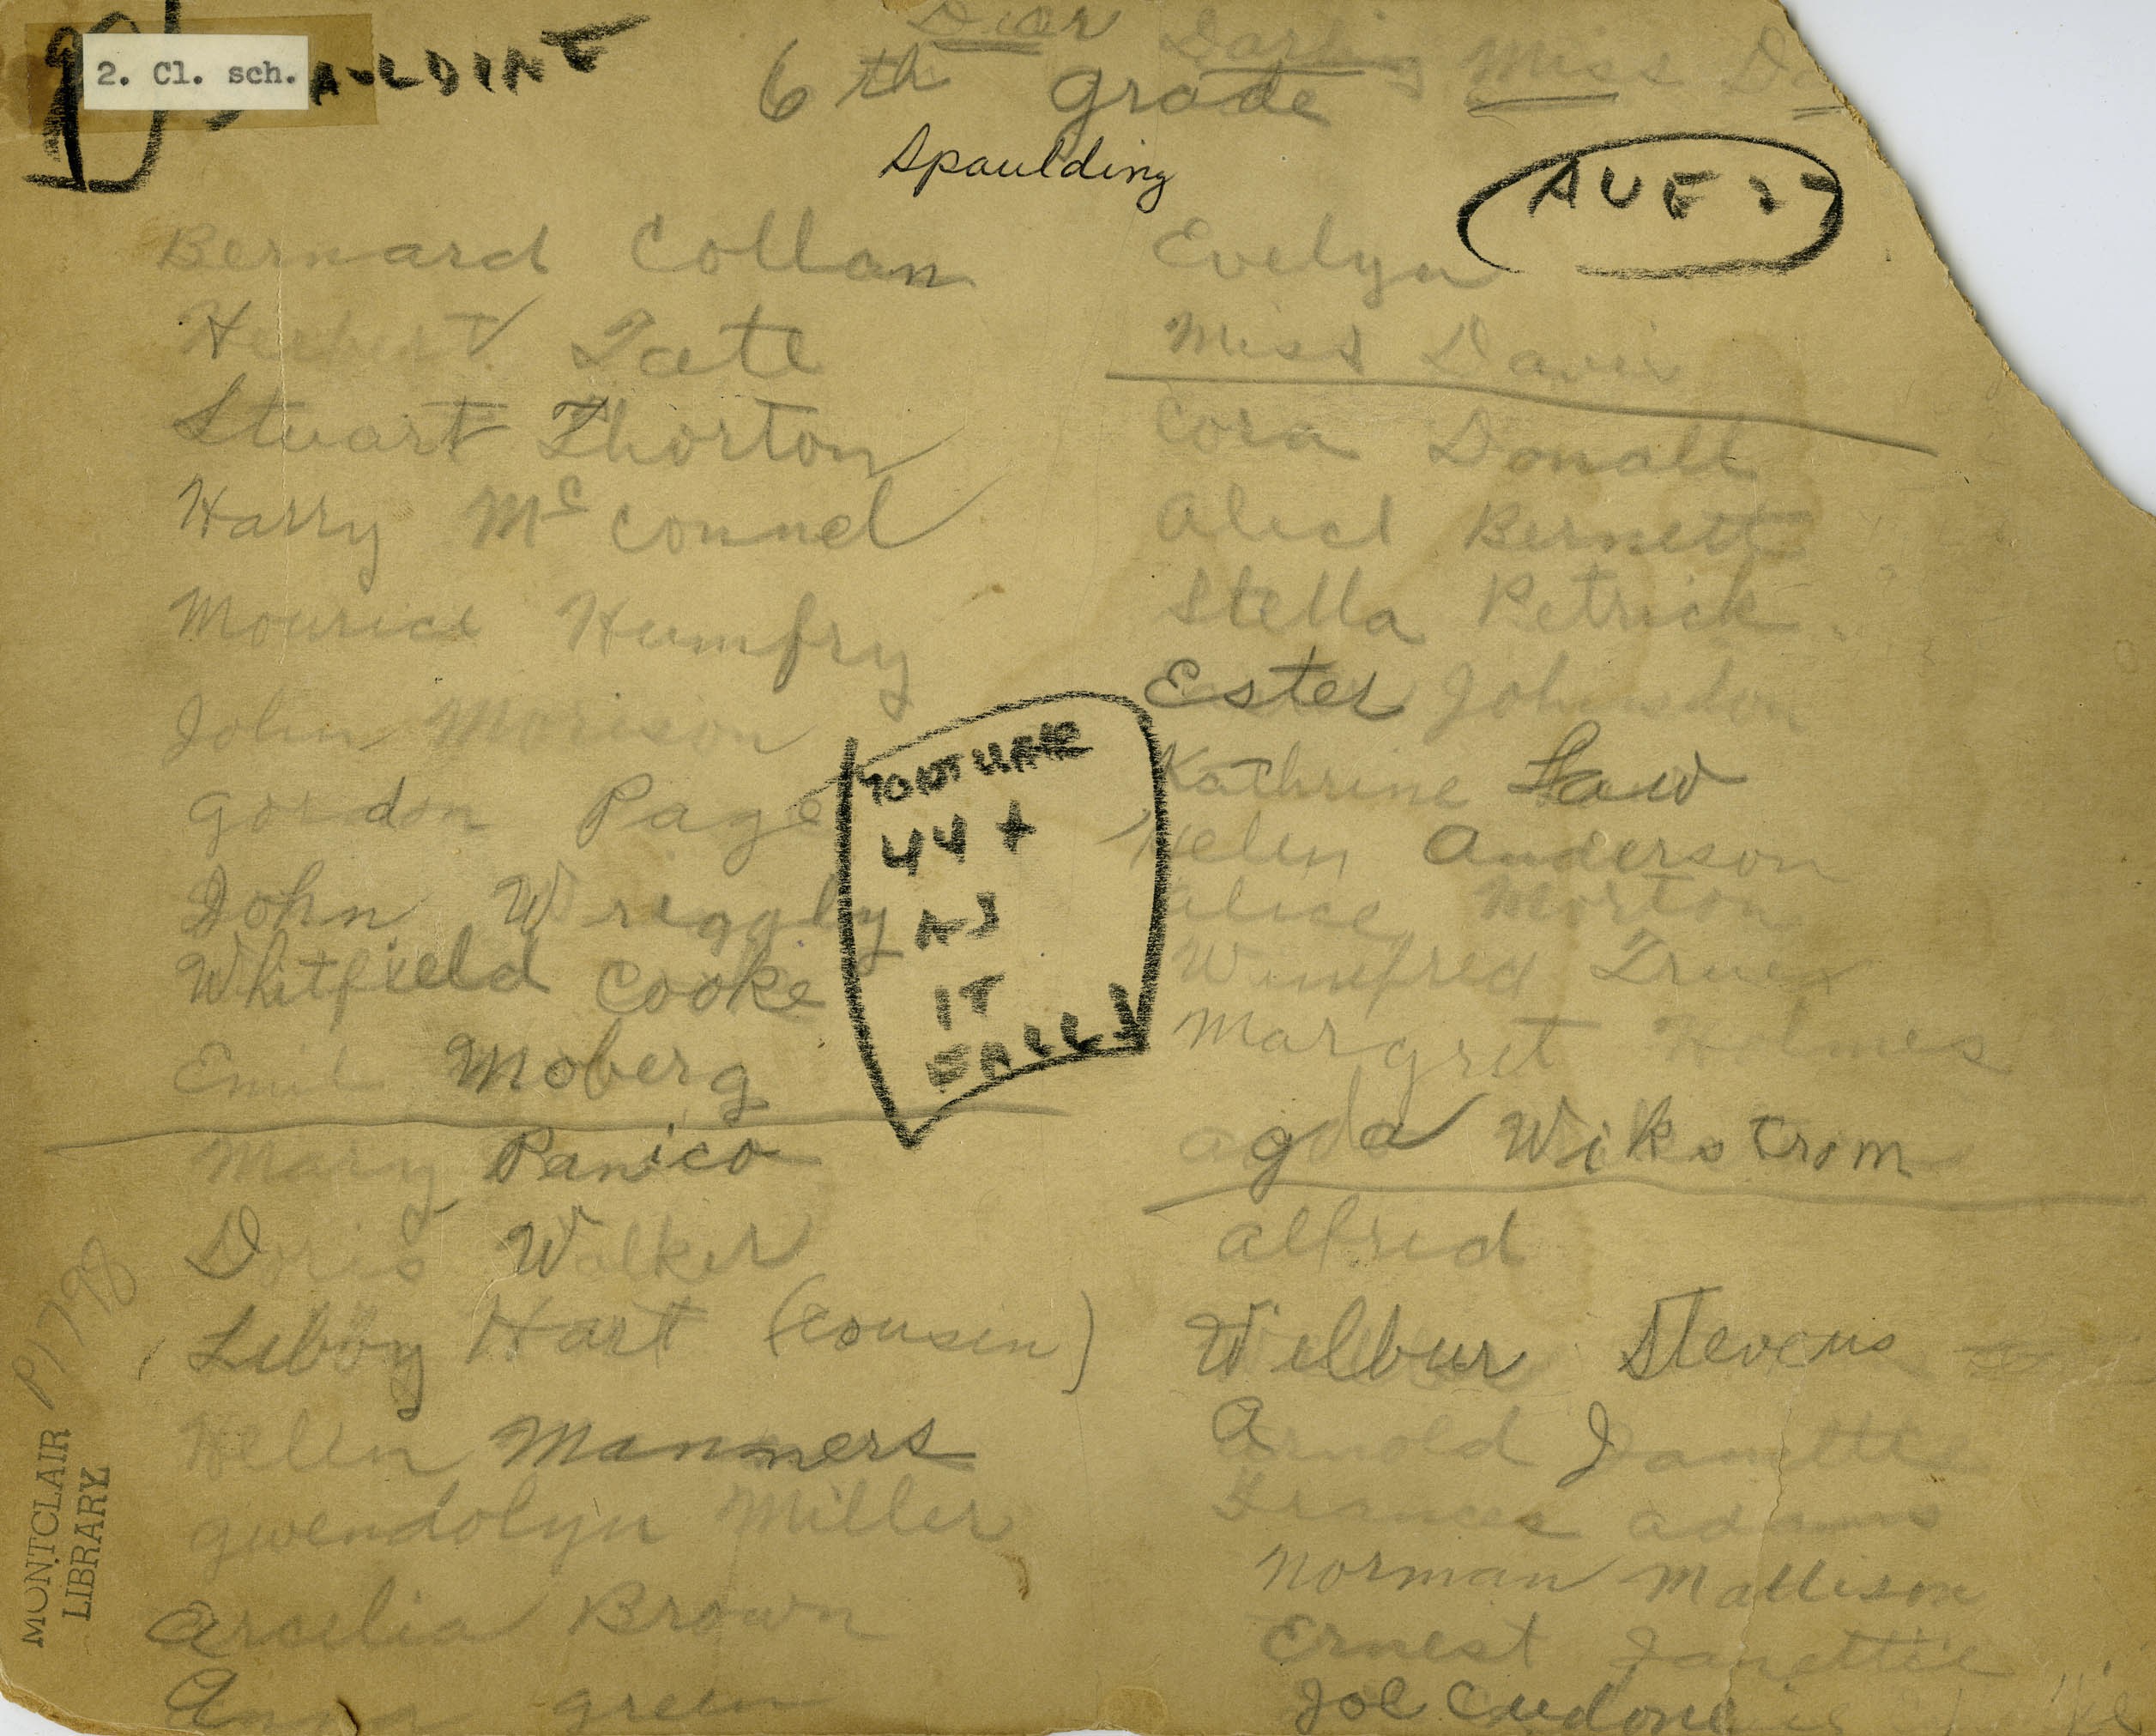 2. Cl. sch.
AULDING
Dear Darling Miss
6th grade
Spaulding
Bernard Collan
Herbert Tate
Stuart Thorton
Harry Mc Connel
Mourice Humfry
John Morison
Gordon Page
John Wriggly
Whitfield Cooke
Moberg
Mary Panico
Doris Walker
Libby Hart (cousin)
Helen Manners
gwendolyn Miller
Arcelia Brown
Anna green
44 +
AS
IT
FALLS
Evelyn
Miss Davis
Cora Donall
Alice Bernett
Stella Petrick
Ester Johnston
Kathrine Law
Helen Anderson
Alice Morton
Winifred Truex
Margret Holmes
agda Wikstrom
alfred
Wilbur Stevens
Arnold Janettie
Frances adams
Norman Mattison
Ernest Janettie
Joe
P1798
MONTCLAIR
LIBRARY